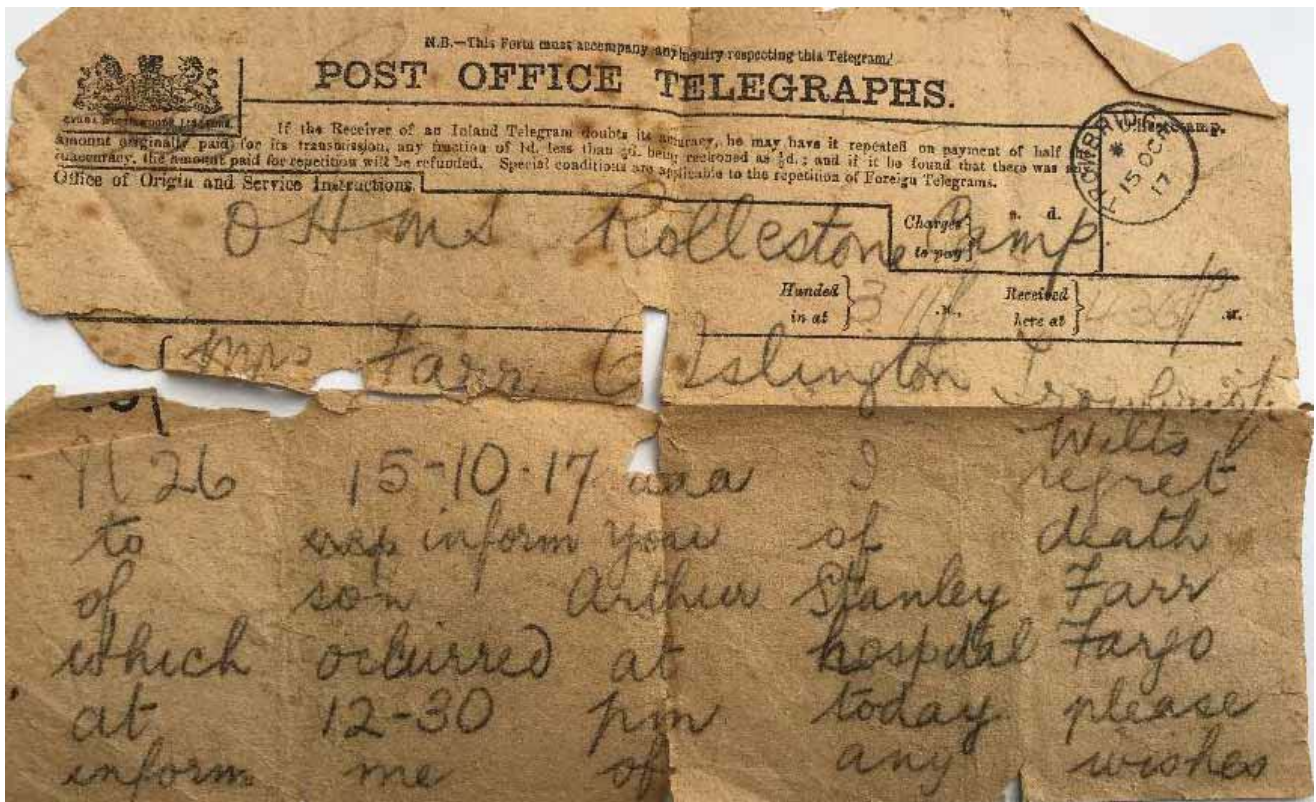 N.B.—This Form must accompany any inquiry respecting this Telegram.
POST OFFICE TELEGRAPHS.
If the Receiver of an Inland Telegram doubts its accuracy, he may have it repeated on payment of half
amount originally paid for its transmission, any fraction of 1d. less than ½d. being reckoned as ½d.; and if it be found that there was any
inaccuracy, the amount paid for repetition will be refunded. Special conditions are applicable to the repetition of Foreign Telegrams.
Office of Origin and Service Instructions.
Office Stamp.
TROWBRIDGE
15 OC
17
Charges to pay
s. d.
OHMS Rollestone Camp
Handed in at
.M.,
Received here at
.M.
Mrs Farr Islington Trowbridge
Wilts
26 15-10-17 aaa I regret
to inform you of death
of son Arthur Stanley Farr
which occurred at hospital Fargo
at 12-30 pm today please
inform me of any wishes